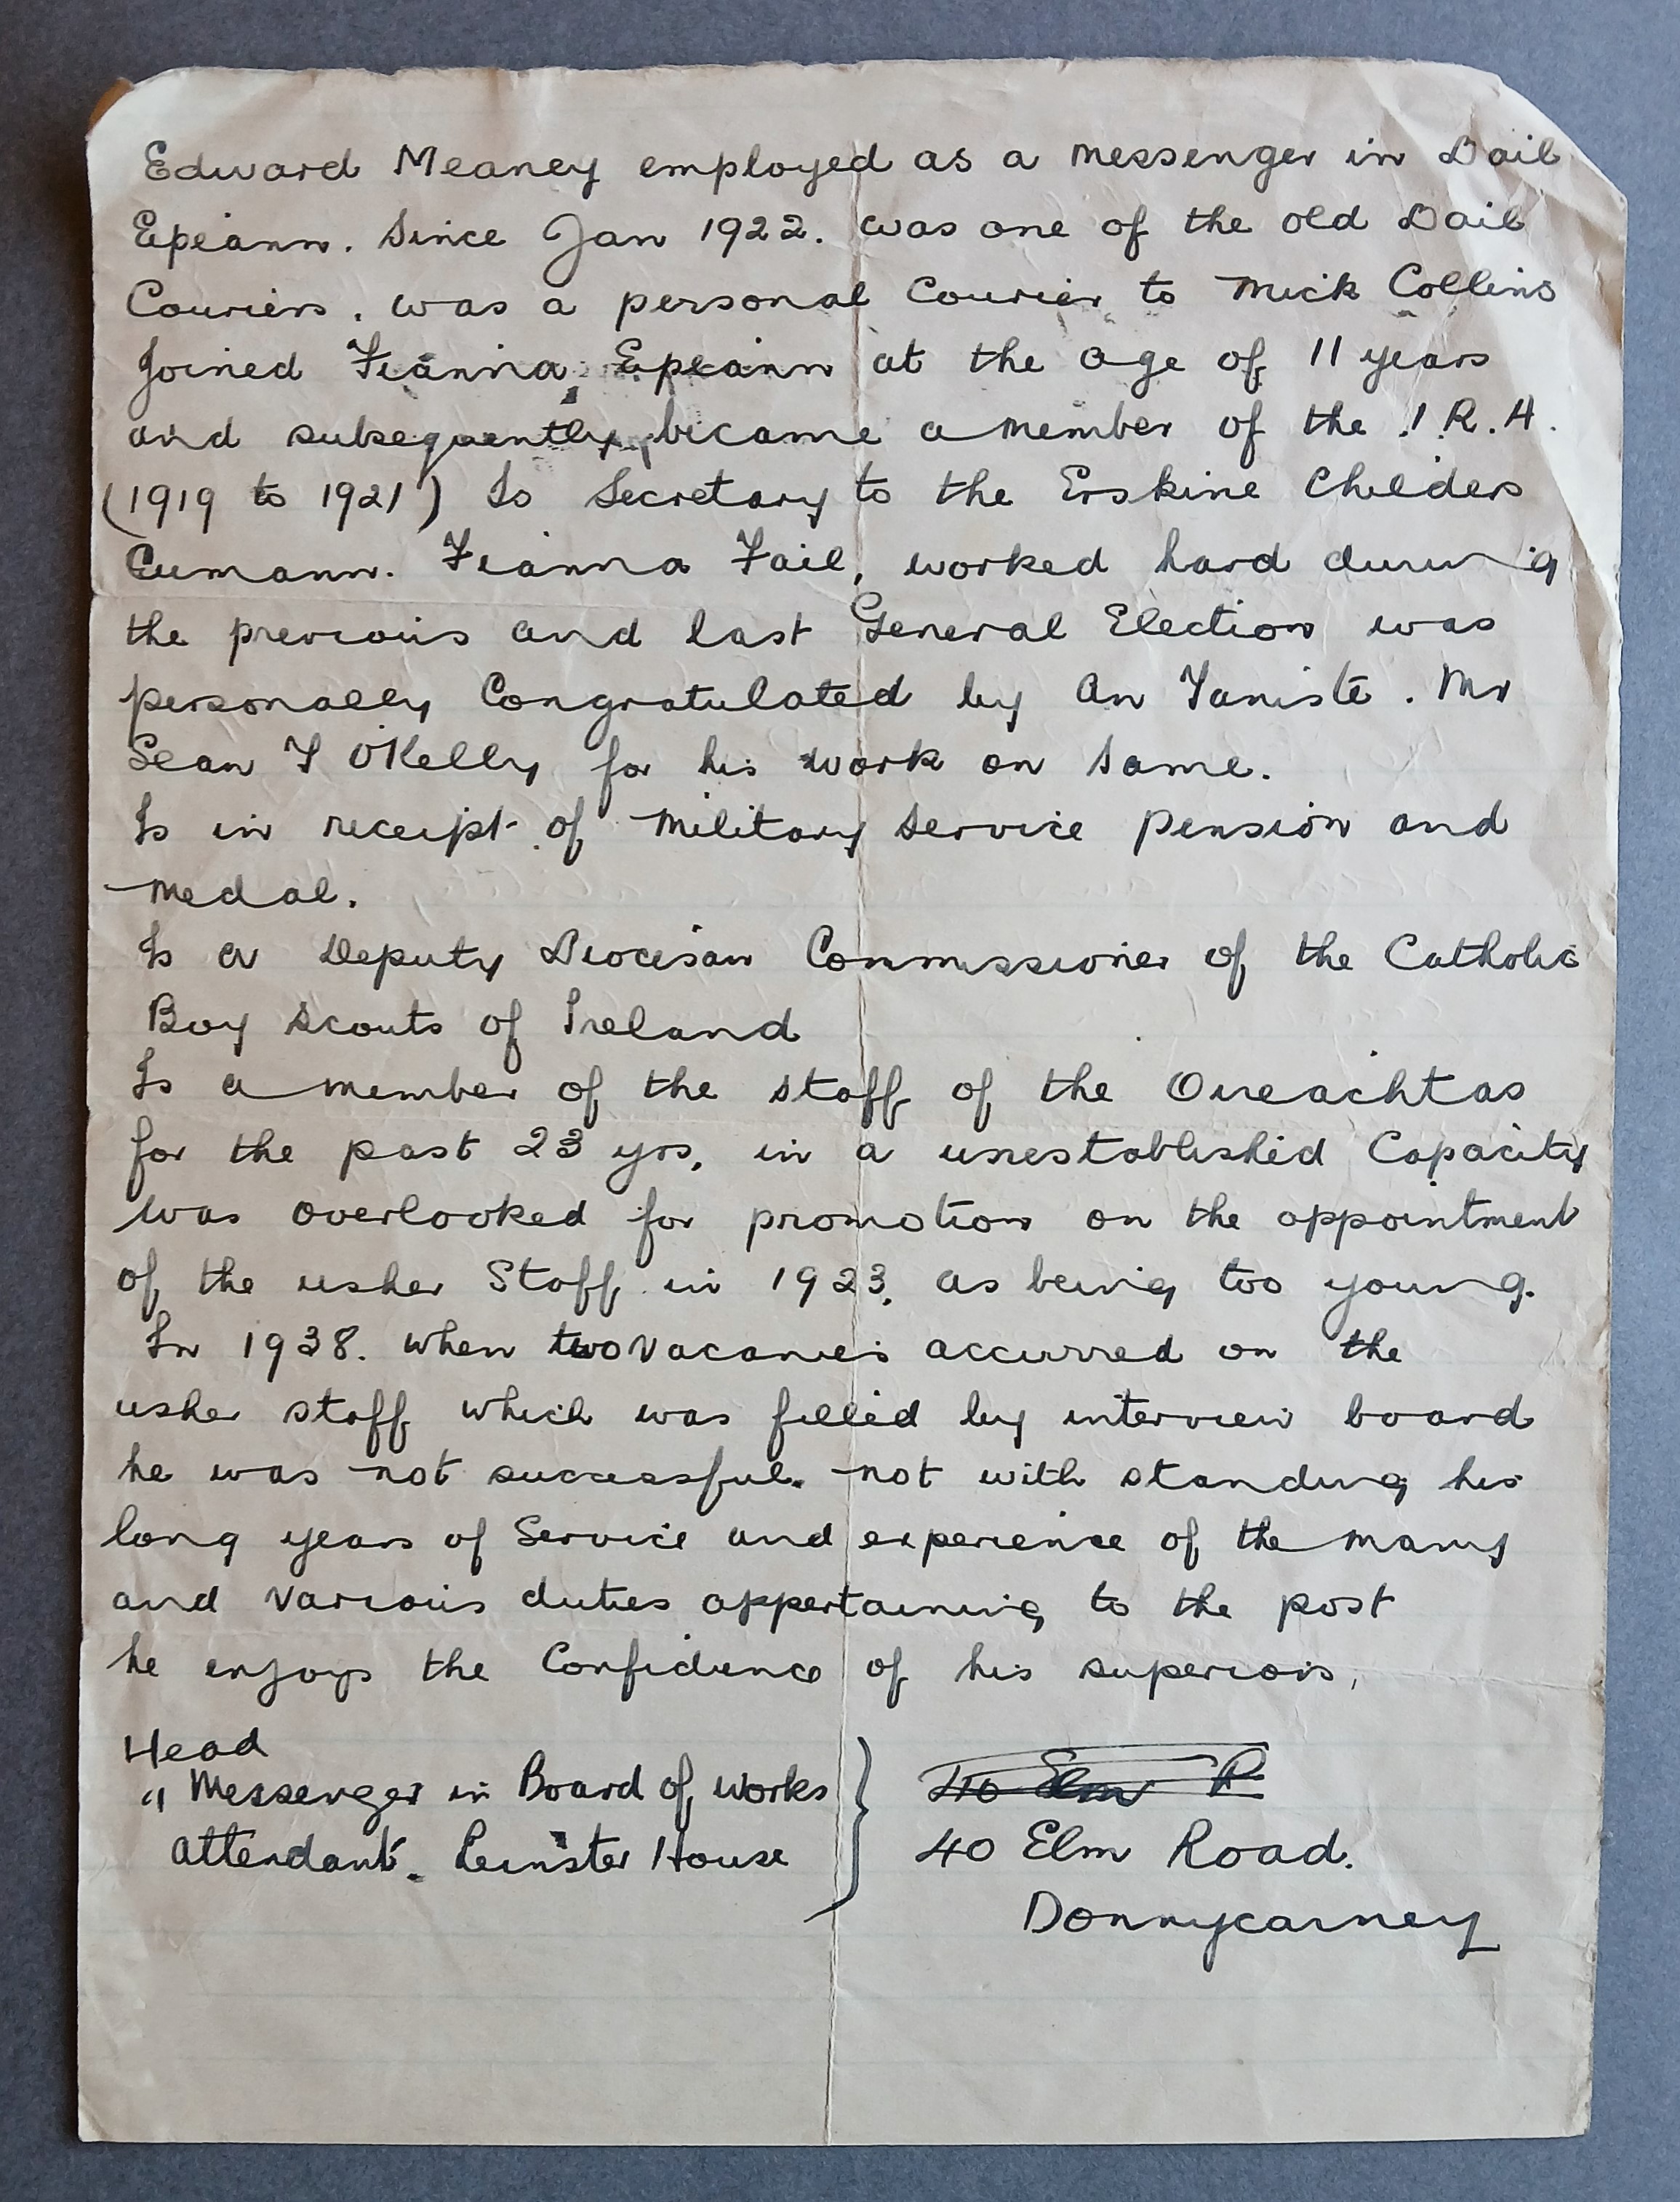 Edward Meaney employed as a messenger in Dail
Eireann. Since Jan 1922. was one of the old Dail
Couriers, was a personal Courier to Mick Collins
Joined Fianna Eireann at the age of 11 years
and subsequently became a member of the I.R.A.
(1919 to 1921) Is Secretary to the Erskine Childers
Cumann. Fianna Fail, worked hard during
the previous and last General Election was
personally Congratulated by An Taniste. Mr
Sean T O'Kelly for his work on same.
Is in receipt of Military Service Pension and
Medal.
Is a Deputy Diocesan Commissioner of the Catholic
Boy Scouts of Ireland
Is a member of the staff of the Oireachtas
for the past 23 yrs, in a unestablished Capacity
was overlooked for promotion on the appointment
of the usher Staff in 1923, as being too young.
In 1938. when two vacancies accurred on the
usher staff which was filled by interview board
he was not successful. not with standing his
long years of Service and experience of the many
and various duties appertaining to the post
he enjoys the Confidence of his superiors,
Head
" Messenger in Board of Works
Attendant. Leinster House
40 Elm R
40 Elm Road.
Donnycarney